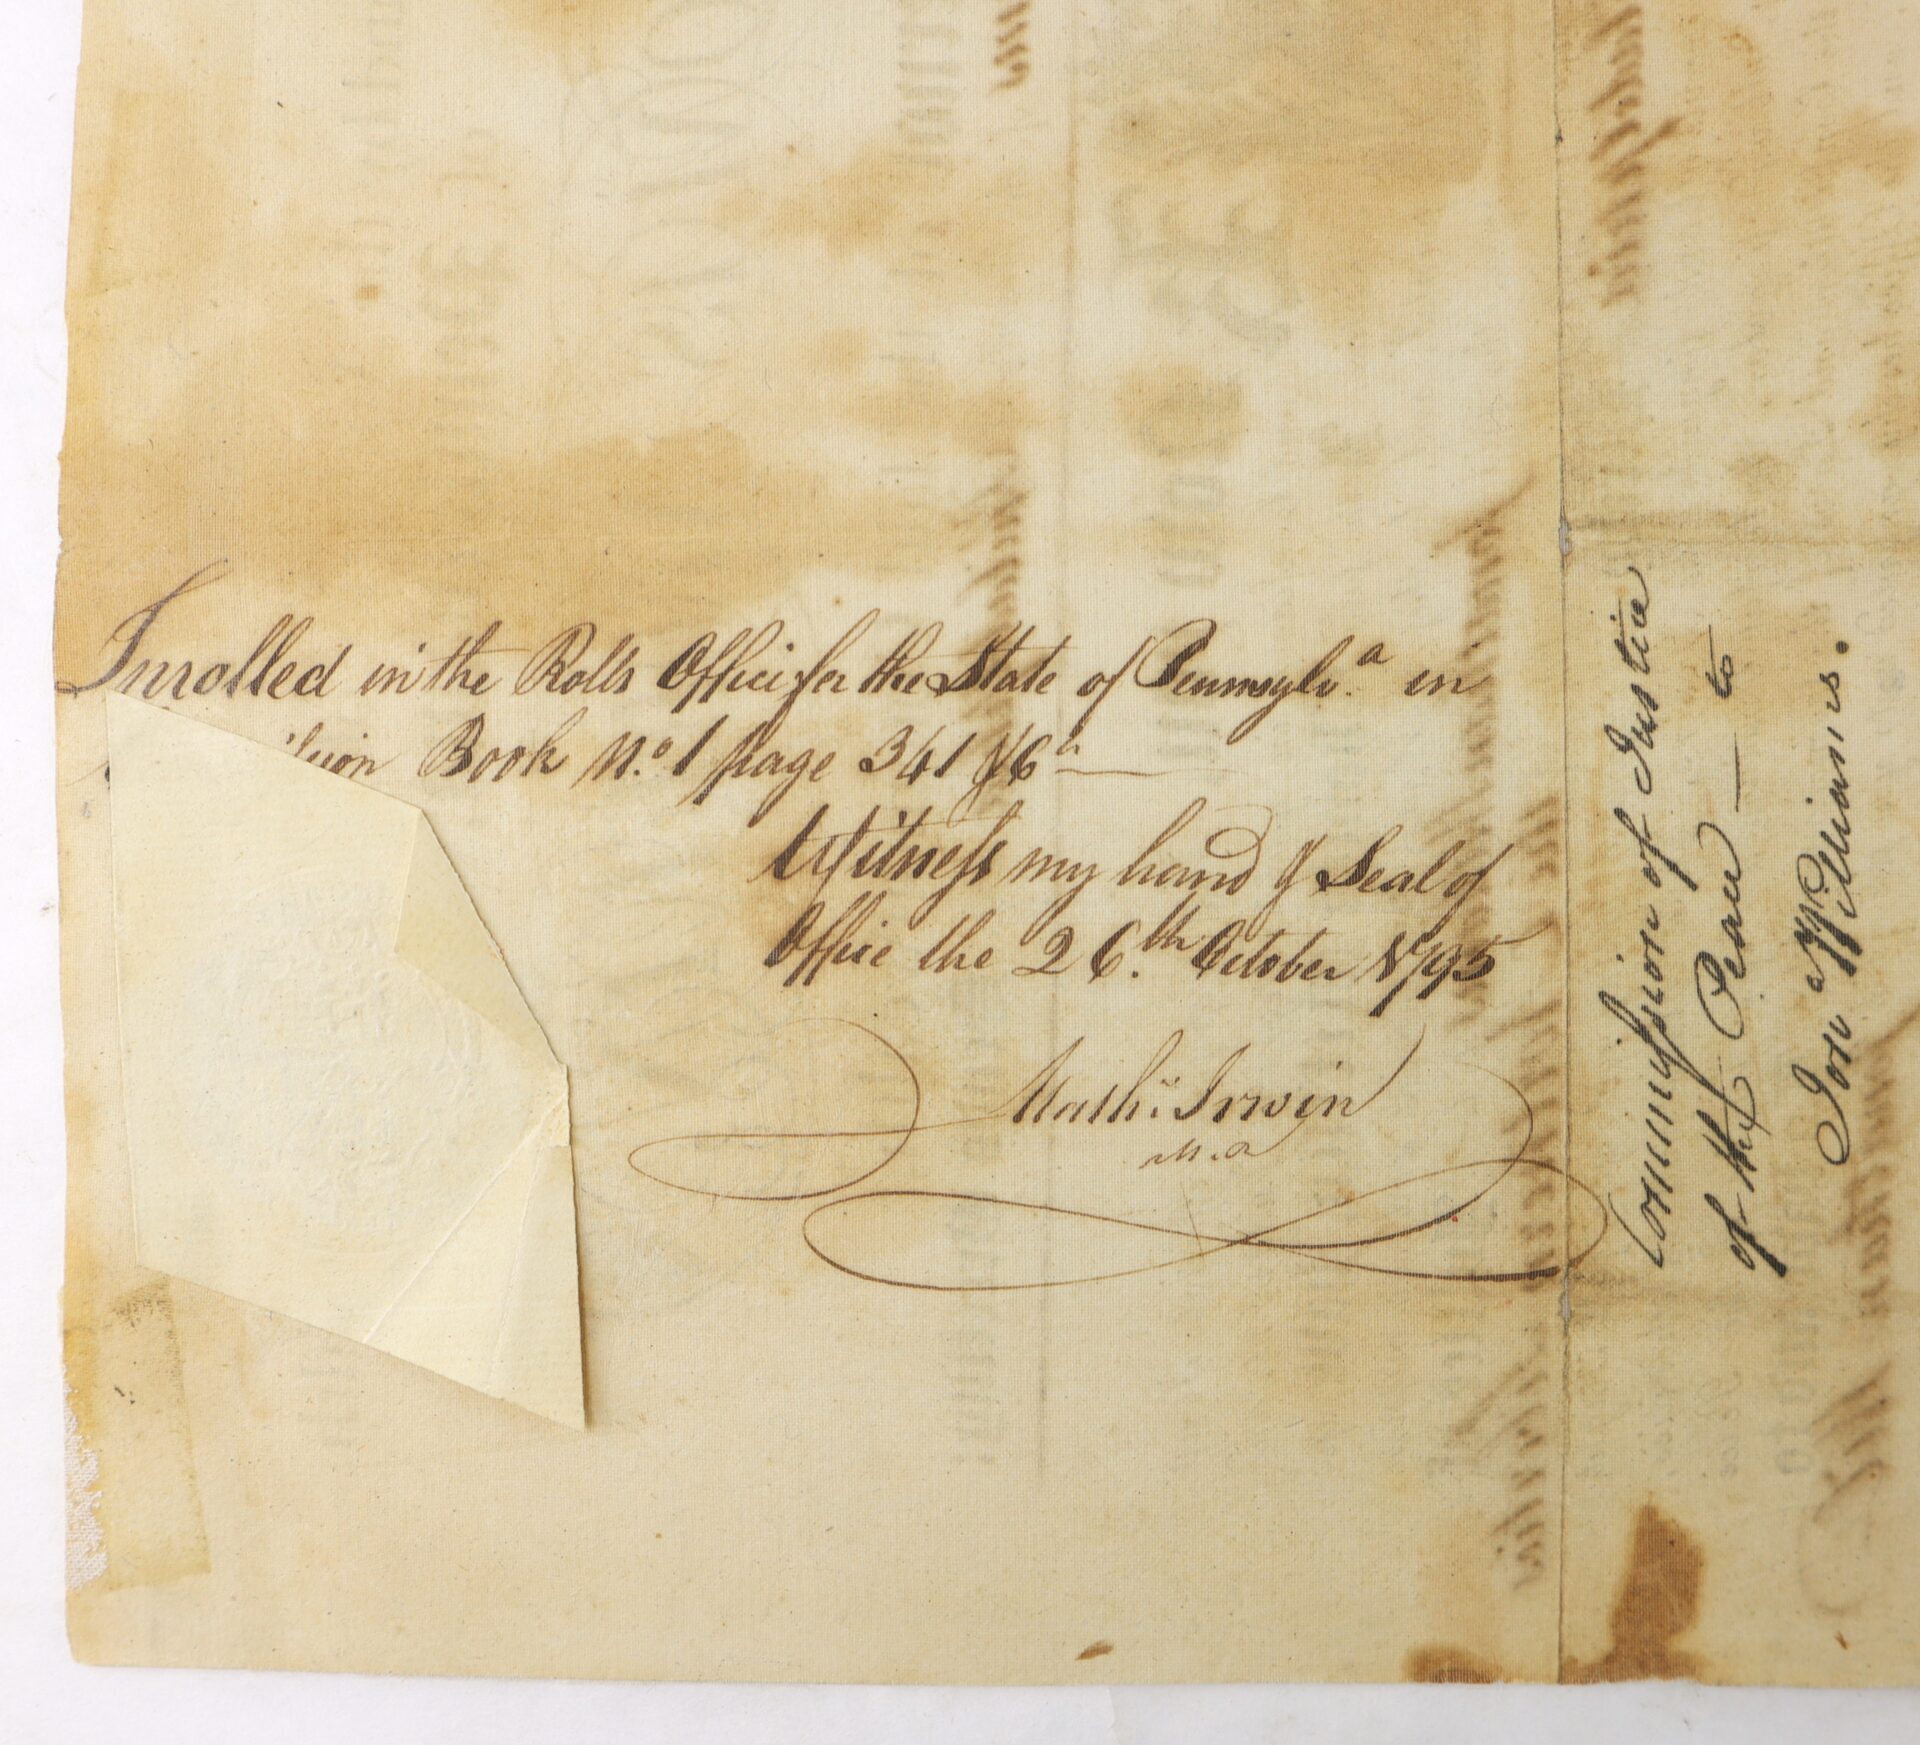 Inrolled in the Rolls Office for the State of Pennsylvᵃ. in
Book Nº. 1 page 341 &cᵃ
Witness my hand & Seal of
Office the 26.th October 1795
Mathw. Irwin
M.R
Commission of Justice
of the Peace — to
Jon Williams.